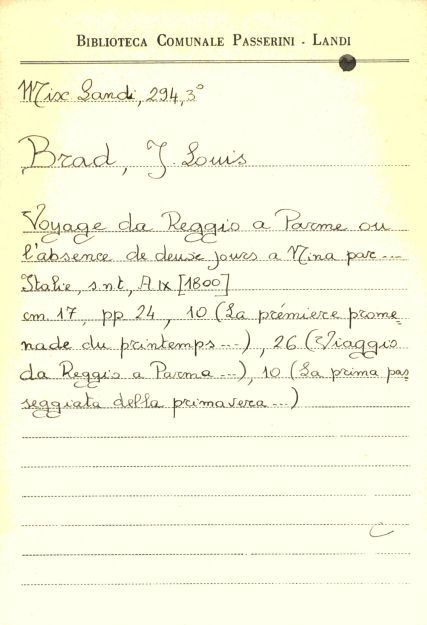 BIBLIOTECA COMUNALE PASSERINI - LANDI
Mix Landi, 294,3°
Brad, J. Louis
Voyage da Reggio a Parme ou
l'absence de deux jours a Nina par---
Italie, s.n.t., A IX [1800]
cm. 17, pp 24, 10 (La prémiere prome=
nade du printemps ---), 26 (Viaggio
da Reggio a Parma ---), 10 (La prima pas
seggiata della primavera ---)
C